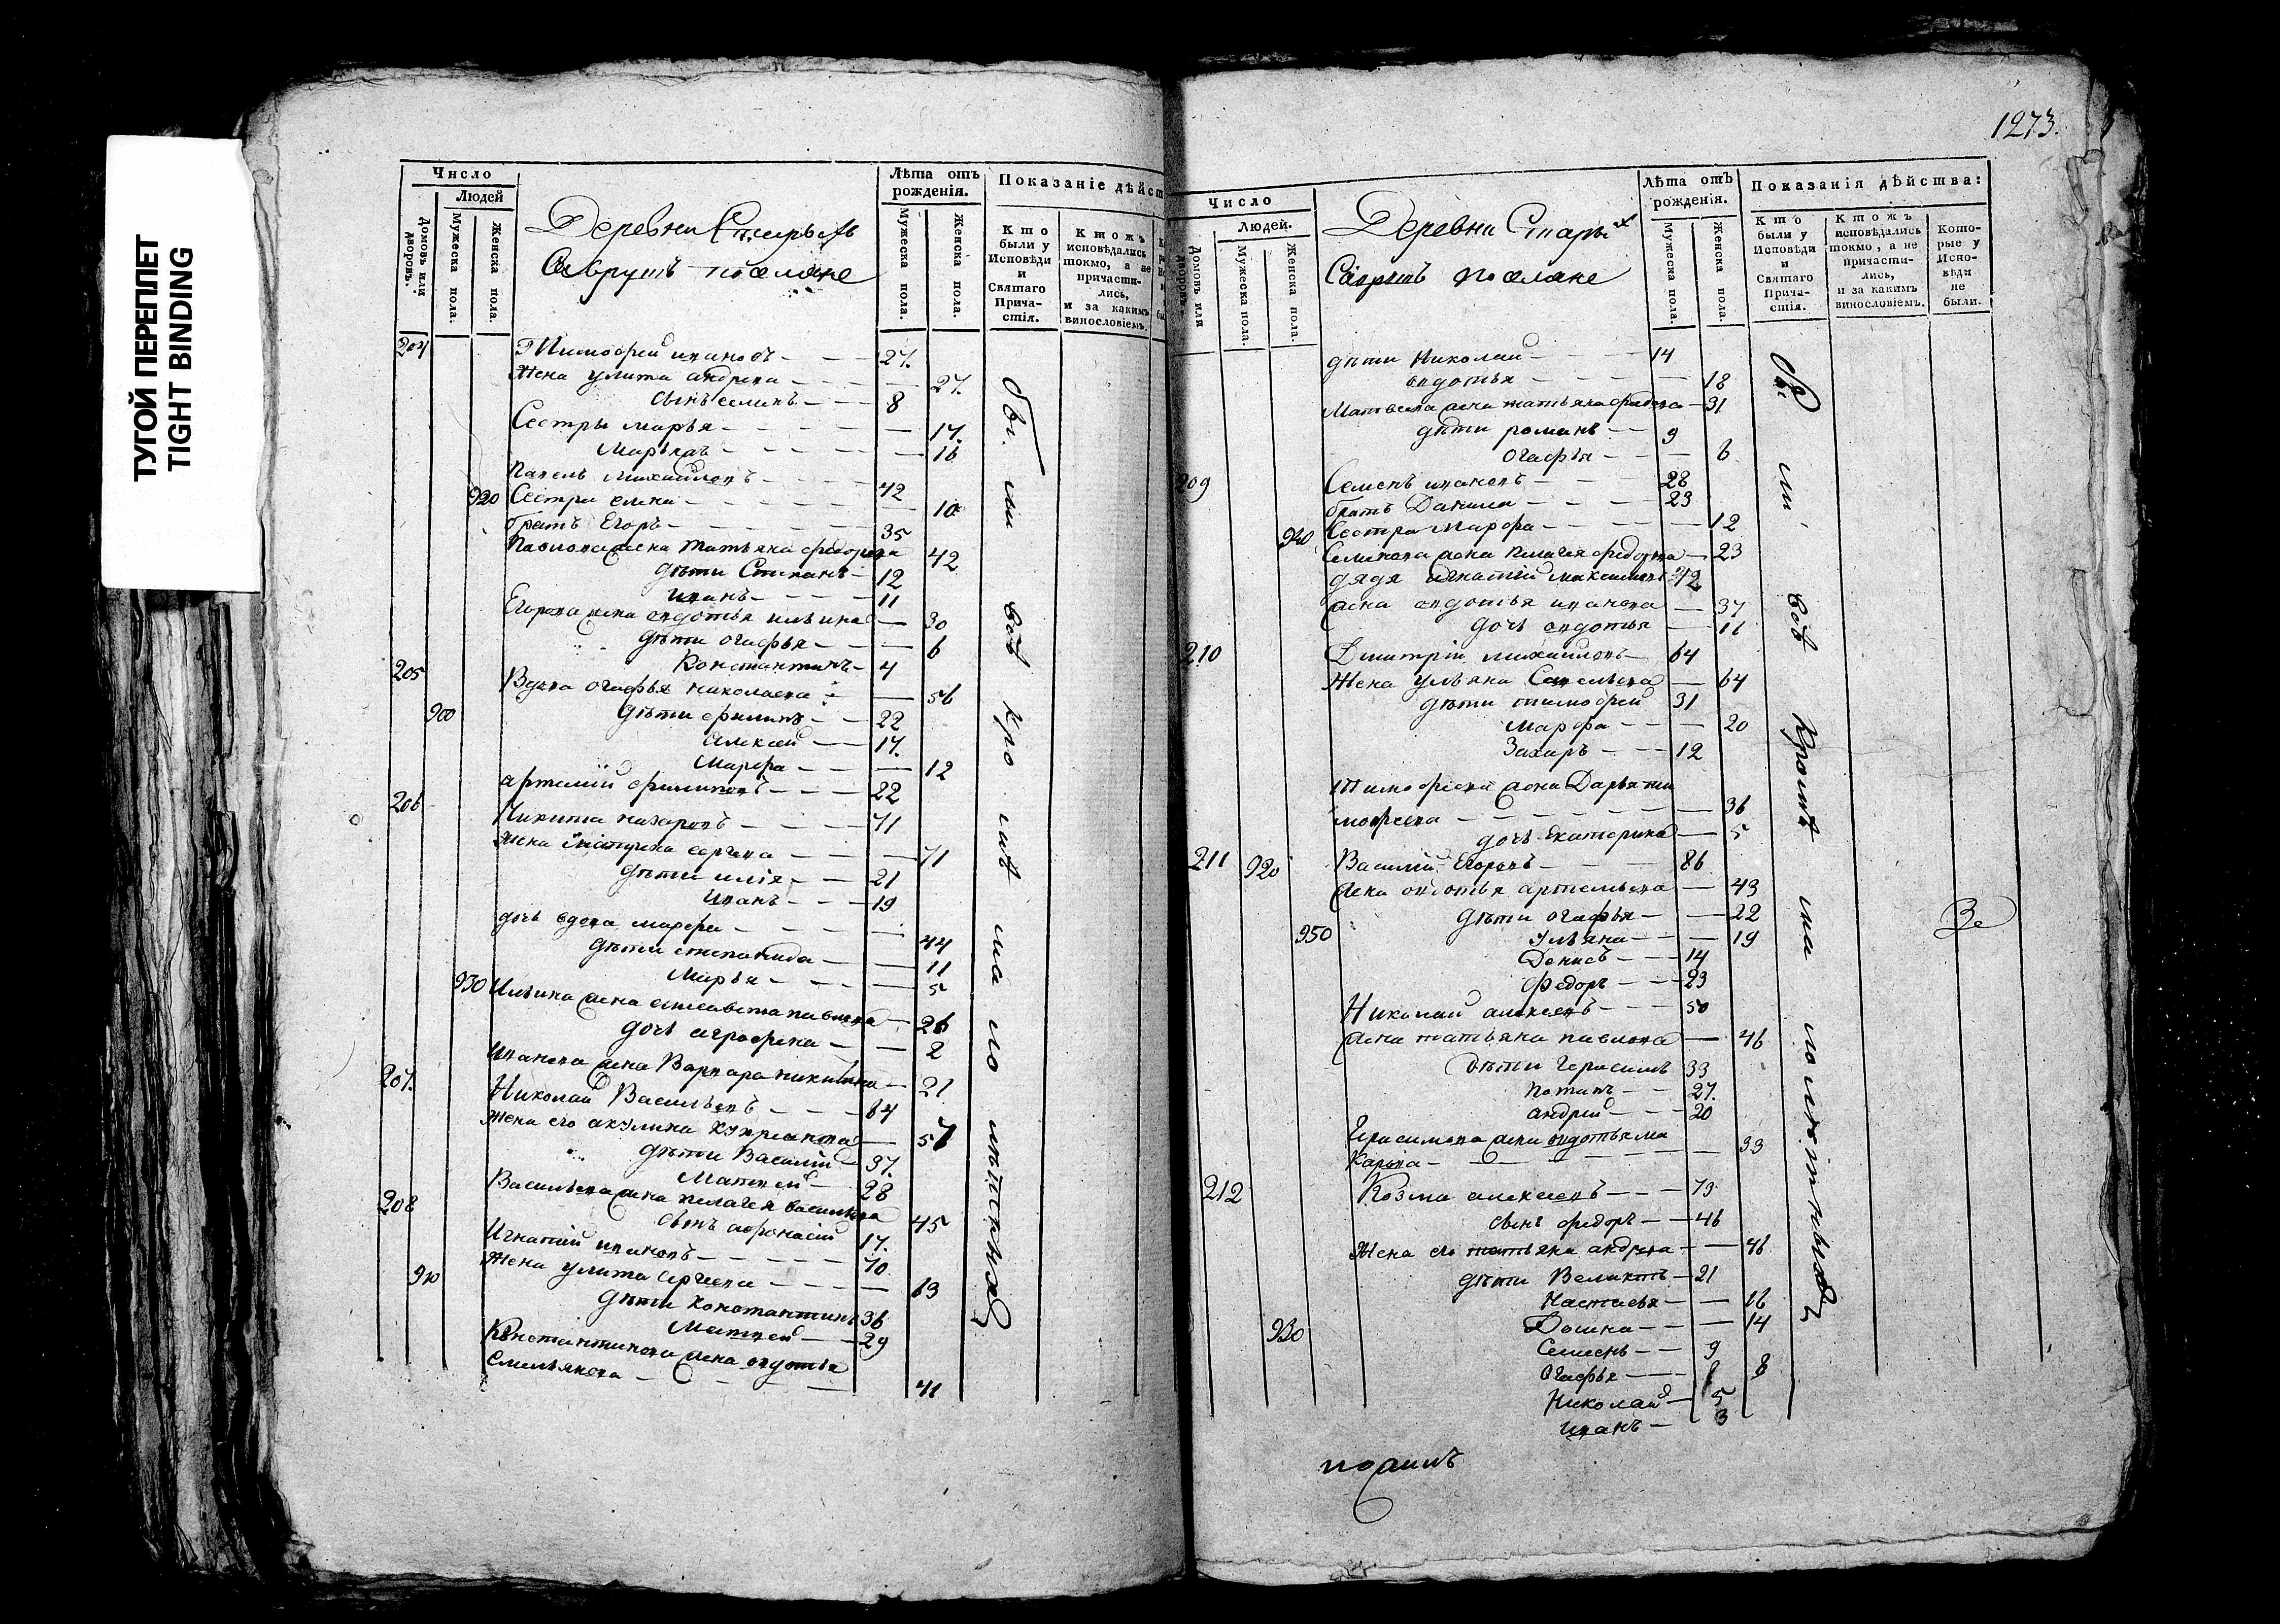 ТУГОЙ ПЕРЕПЛЕТ
TIGHT BINDING
Число
Людей
Домовъ или дворовъ.
Мужеска пола.
Женска пола.
Деревни Старыхъ
поселяне
Лѣта отъ рожденія.
Мужеска пола.
Женска пола.
Показаніе дѣйст
Кто были у Исповѣди и Святаго Прича-стія.
Ктожъ исповѣдались токмо, а не причасти-лись, и за какимъ винословіемъ.
204 Тимофей ивановъ 27.
Жена улита андреева 27.
сынъ семенъ 8
Сестры марья 17.
16
Павелъ михайловъ 42
920 Сестра елена 10
братъ Егоръ 35
Павлова жена татьяна федорова 42
дѣти Степанъ 12
иванъ 11
Егорова жена евдотья ильина 30
дѣти огафья 6
Константинъ 4
205 Вдова огафья николаева 56
900 дѣти филипъ 22
алексей 17.
Марфа 12
артемий филиповъ 22
206 Никита назаровъ 71
жена сергеева 71
дѣти илія 21
Иванъ 19
дочь вдова марфа 44
дѣти степанида 11
Марья 5
930 Ильина жена елисавета павлова 26
дочь аграфена 2
Иванова жена Варвара никитина 21
207. Николай Васильевъ 64
жена его акулина 57
дѣти Василий 37.
Матвей 28
Васильева жена пелагея васильева 45
сынъ афонасий 17.
208 Игнатий ивановъ 70
910 жена улита сергеева 63
дѣти константинъ 36
Матвей 29
Константинова жена евдотья
Емельянова 41
1273.
Число
Людей.
Домовъ или дворовъ.
Мужеска пола.
Женска пола.
Деревни Старых
поселяне
Лѣта отъ рожденія.
Мужеска пола.
Женска пола.
Показанія дѣйства:
Кто были у Исповѣди и Святаго Прича-стія.
Ктожъ исповѣдались токмо, а не причасти-лись, и за какимъ винословіемъ.
Кото-рые у Испо-вѣди не были.
дѣти Николай 14
евдотья 18
Матвеева жена татьяна федорова 31
дѣти романъ 9
Огафья 6
209 Семенъ ивановъ 28
братъ Данила 23
940 Сестра Марфа 12
Семенова жена пелагея федорова 23
дядя игнатий 42
жена евдотья иванова 37
дочь евдотья 11
210 Дмитрий михайловъ 64
Жена ульяна Савельева 64
дѣти тимофей 31
Марфа 20
Захаръ 12
Тимофеева жена Дарья ти
мофеева 36
дочь Екатерина 5
211 920 Василий Егоровъ 86
жена евдотья артемьева 43
дѣти огафья 22
950 Ульяна 19
Денисъ 14
Федоръ 23
Николай алексеевъ 50
жена татьяна павлова 46
Дѣти Герасимъ 33
Потапъ 27.
андрей 20
Герасимова жена евдотья ма
карова 33
212 Козма алексеевъ 73
сынъ федоръ 46
Жена его татьяна андреева 46
дѣти 21
Настасья 16
930 Домна 14
Семенъ 9
Огафья 8
Николай 5
иванъ 3